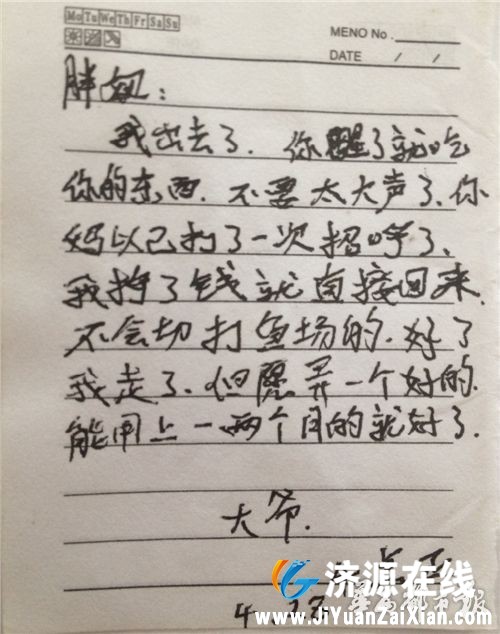 Mo Tu We Th Fr Sa Su
MENO No.
DATE / /
胖妞：
我出去了.你醒了就吃
你的东西.不要太大声了.你
妈以己打了一次招呼了、
我挣了钱就直接回来.
不会切打鱼场的.好了
我走了.但愿弄一个好的.
能用上一两个月的就好了.
大爷.
4.
济源在线
都市报
www.JiYuanZaiXian.com